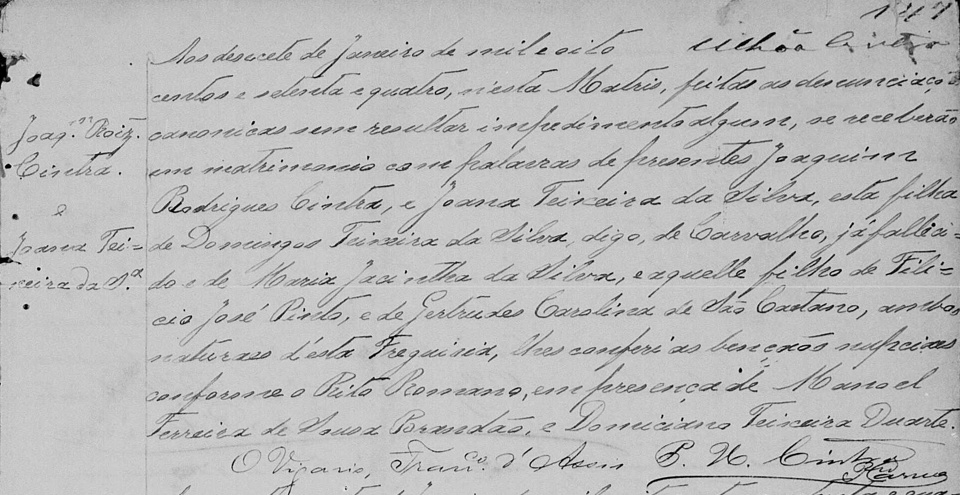 147
Aos desacete de Janeiro de mil e oito
centos e setenta e quatro, n'esta Matris, feitas as denunciaçõ
Joaq.m Roiz. canonicas sem resultar impedimento algum, se receberão
Cintra. em matrimonio com palavras de presentes Joaquim
e Rodrigues Cintra, e Joana Teixeira da Silva, esta filha
Joana Tei- de Domingos Teixeira da Silva, digo, de Carvalho, já falleci-
xeira da S.a do e de Maria Jacintha da Silva, e aquelle filho de Fili-
cio José Pinto, e de Gertrudes Carolina de São Caetano, ambos
naturaes d'esta Freguisia, lhes conferi as bençaõs nupciaes
conforme o Rito Romano, em presença de Manoel
Ferreira de Sousa Brandão, e Domiciano Teixeira Duarte.
O Vigario, Fran.co d'Assis P. N. Cintra